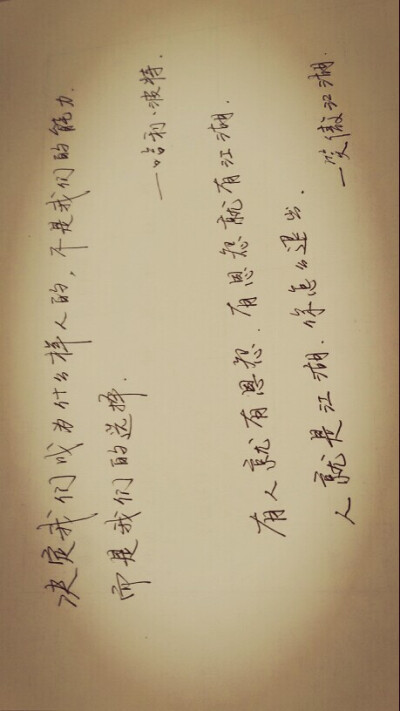 决定我们成为什么样人的，不是我们的能力，
而是我们的选择.
—哈利·波特.
有人就有恩怨.有恩怨就有江湖.
人就是江湖.你怎么退出.
—笑傲江湖